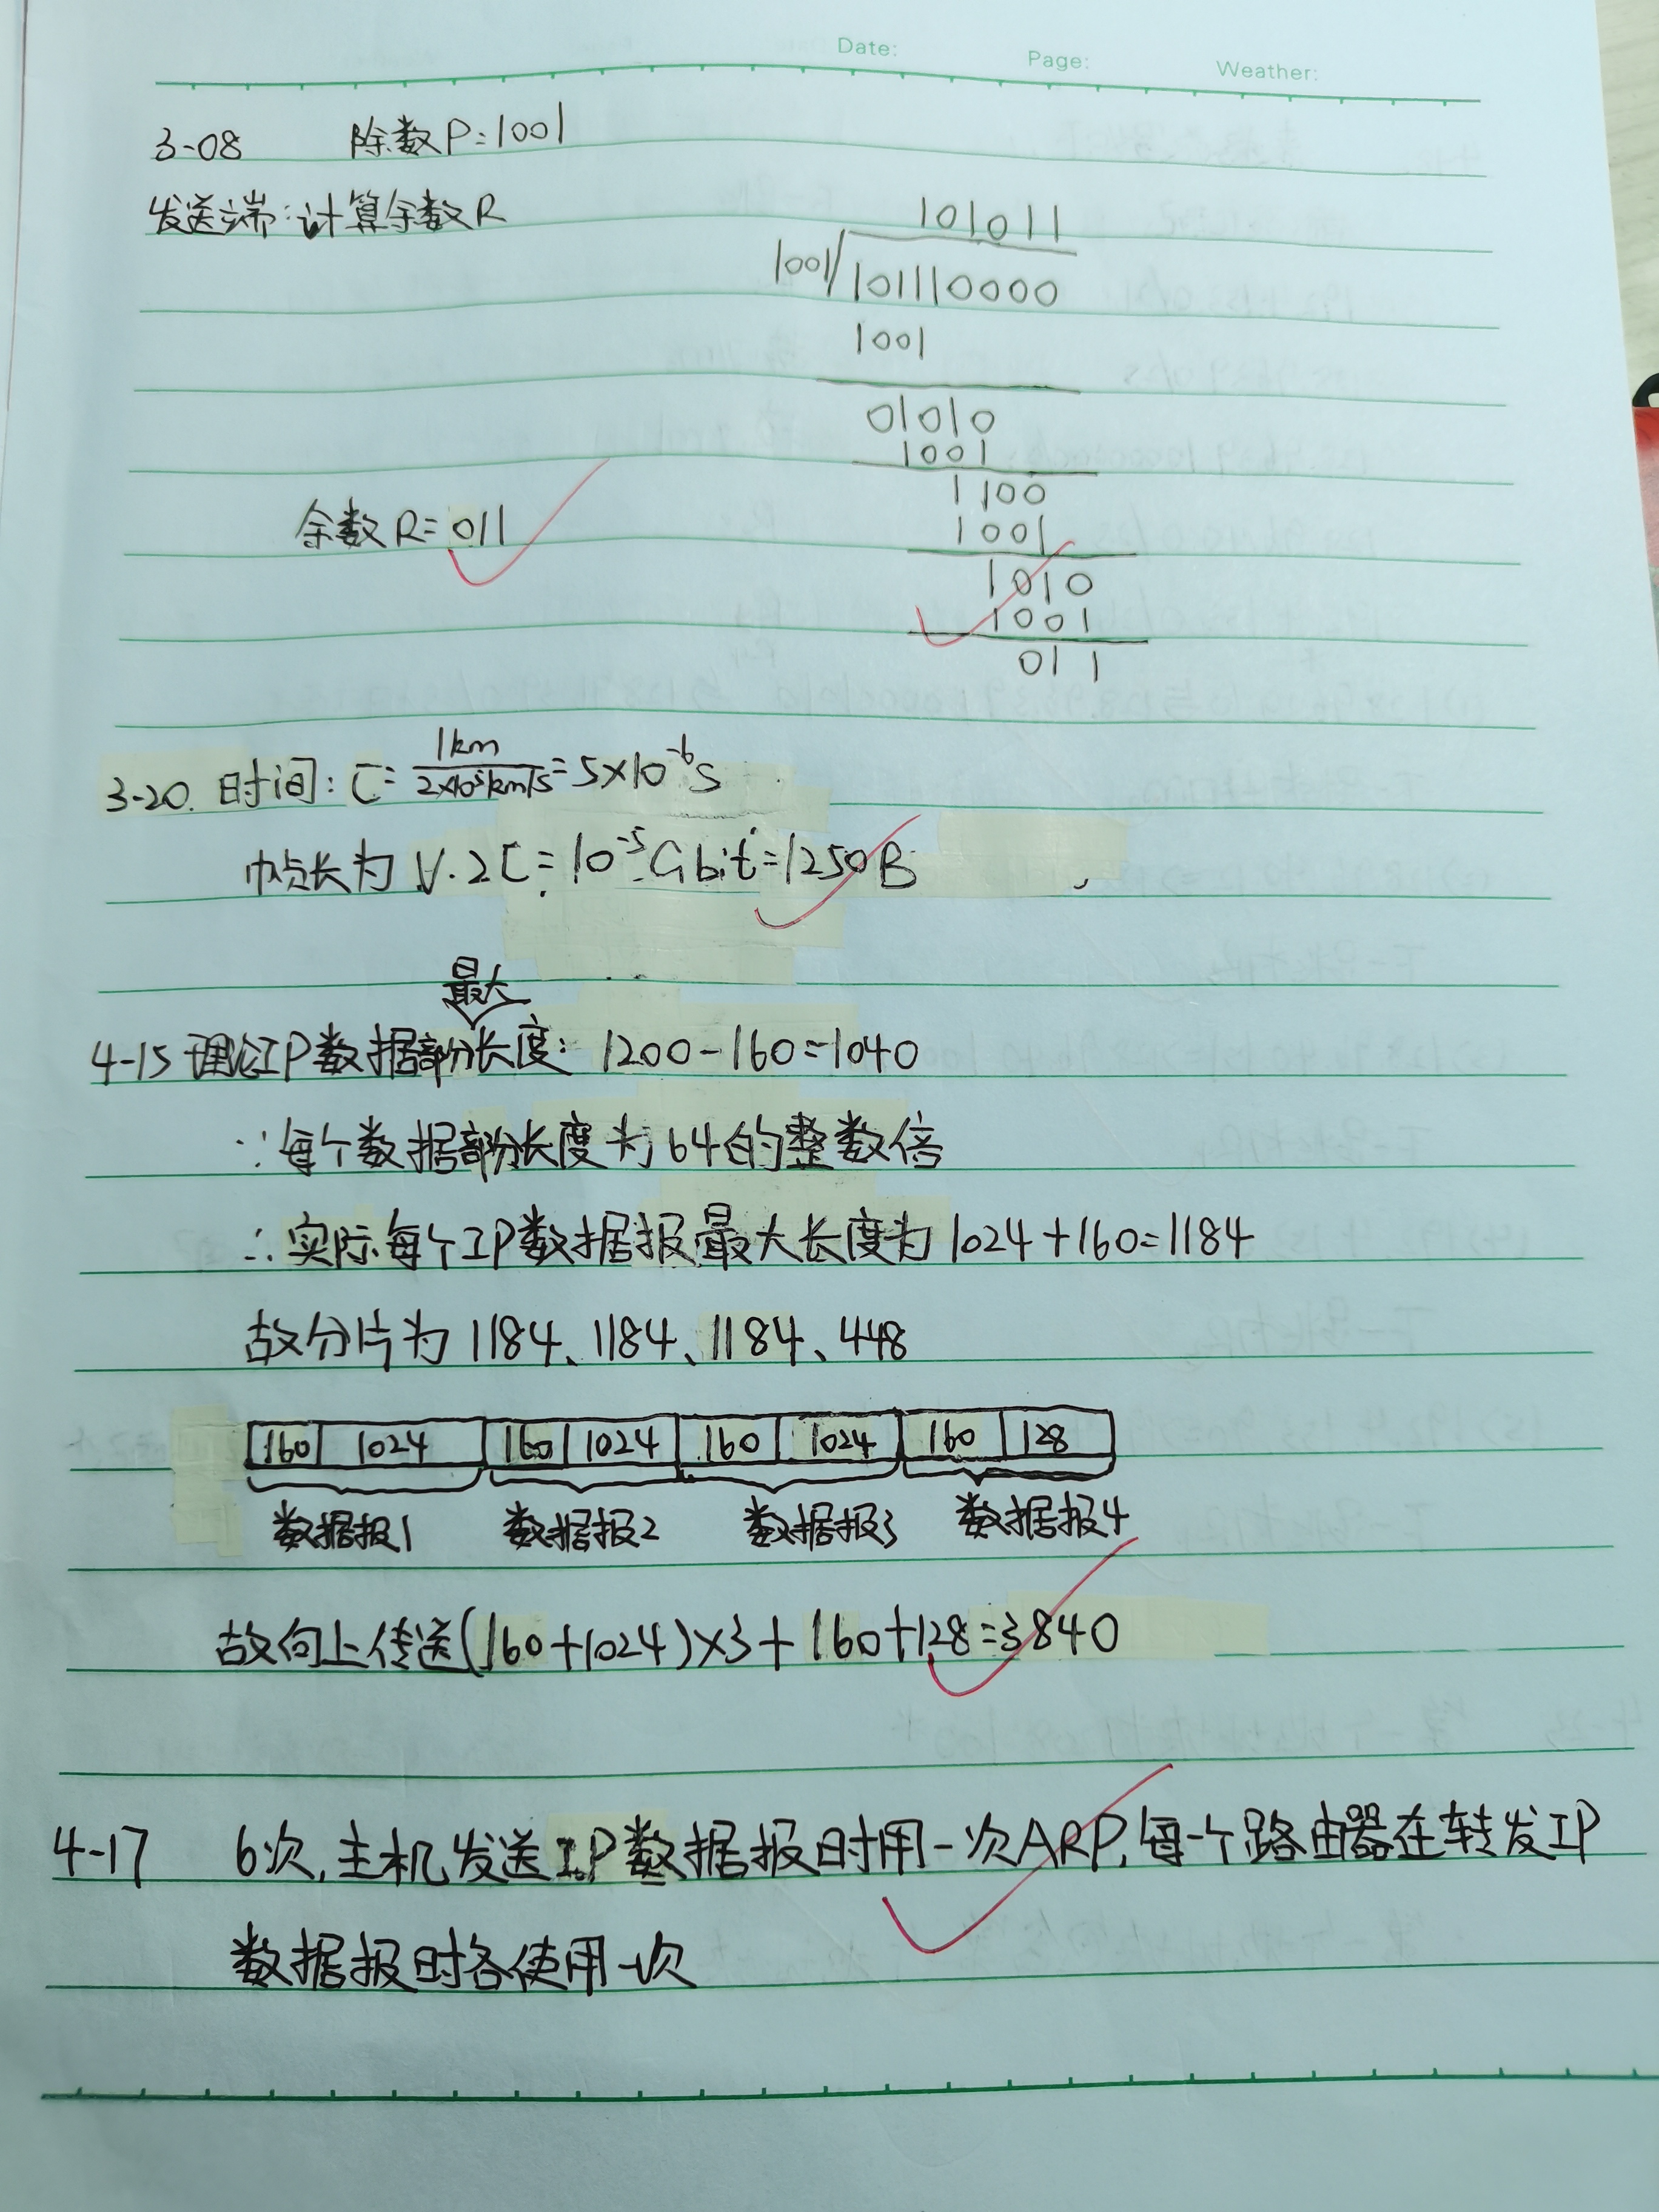 Date:
Page:
Weather:
3-08 除数P=1001
发送端:计算余数R
101011
1001 101110000
1001
01010
1001
1100
1001
1010
1001
011
余数R=011
3-20. 时间: τ= 1km / 2×10⁵km/s = 5×10⁻⁶s
帧长为 V·2τ=10⁻⁵Gbit=1250B
最大
4-15 理论IP数据部分长度: 1200-160=1040
∵每个数据部分长度为64的整数倍
∴实际每个IP数据报最大长度为1024+160=1184
故分片为1184、1184、1184、448
160 1024 160 1024 160 1024 160 128
数据报1 数据报2 数据报3 数据报4
故向上传送(160+1024)×3+160+128=3840
4-17 6次,主机发送IP数据报时用一次ARP,每一个路由器在转发IP
数据报时各使用一次